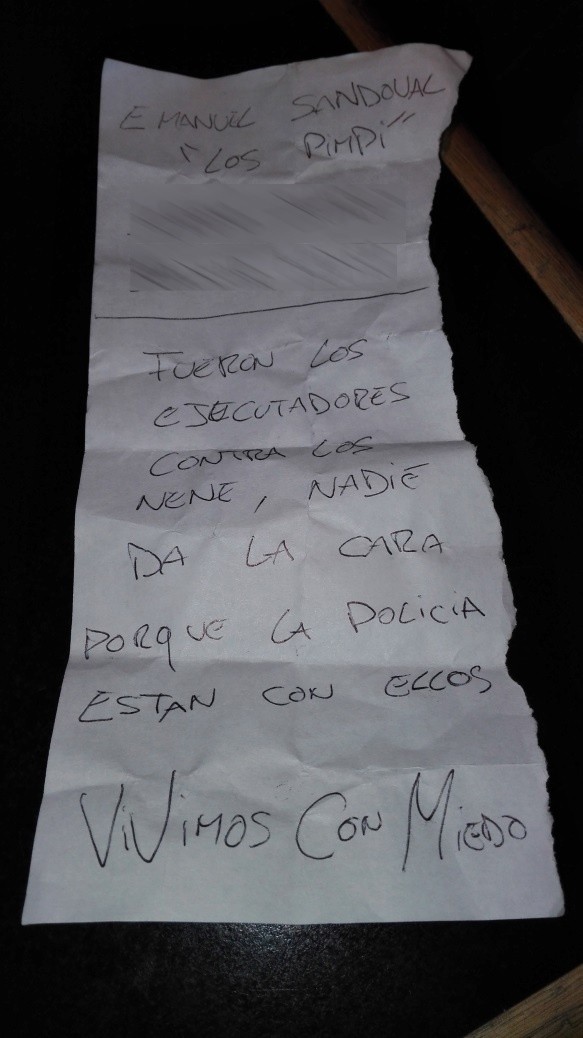 EMANUEL SANDOVAL
"LOS PIMPI"
FUERON LOS
EJECUTADORES
CONTRA LOS
NENE, NADIE
DA LA CARA
PORQUE LA POLICIA
ESTAN CON ELLOS
ViViMOS CON MIEDO